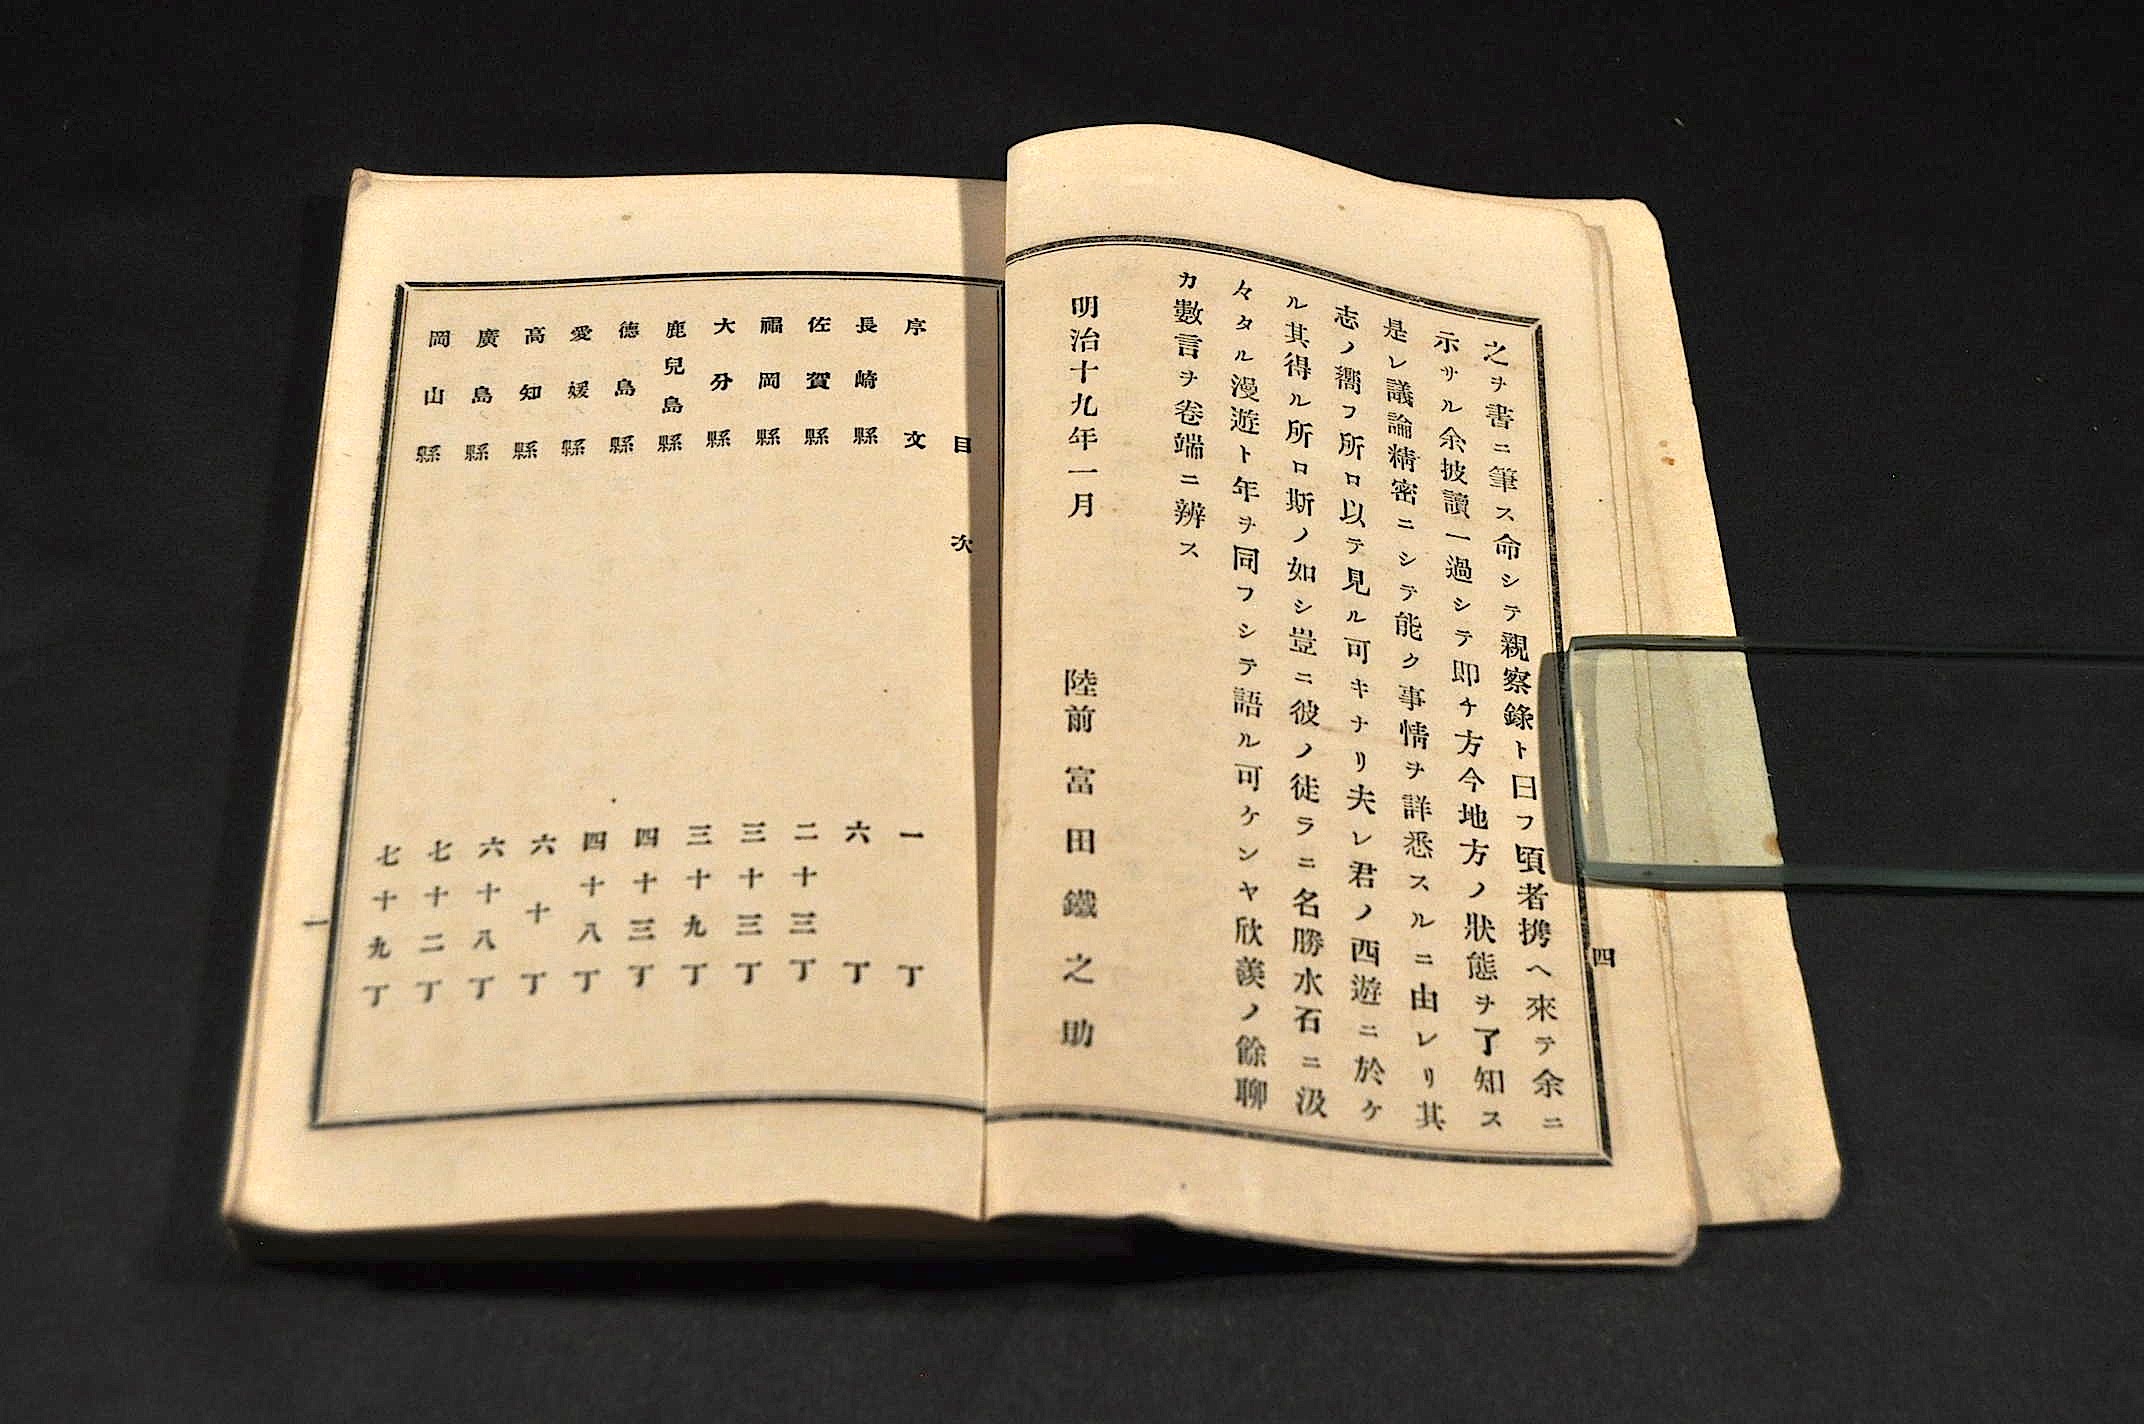 之ヲ書ニ筆ス命シテ親察錄ト曰フ頃者携ヘ來テ余ニ
示サル余披讀一過シテ即チ方今地方ノ狀態ヲ了知ス
是レ議論精密ニシテ能ク事情ヲ詳悉スルニ由レリ其
志ノ嚮フ所ロ以テ見ル可キナリ夫レ君ノ西遊ニ於ケ
ル其得ル所ロ斯ノ如シ豈ニ彼ノ徒ラニ名勝水石ニ汲
々タル漫遊ト年ヲ同フシテ語ル可ケンヤ欣羨ノ餘聊
カ數言ヲ卷端ニ辨ス
明治十九年一月 陸前 富田鐵之助
四
目次
序文 一丁
長崎縣 六丁
佐賀縣 二十三丁
福岡縣 三十三丁
大分縣 三十九丁
鹿兒島縣 四十三丁
德島縣 四十八丁
愛媛縣 六十丁
高知縣 六十八丁
廣島縣 七十二丁
岡山縣 七十九丁
一